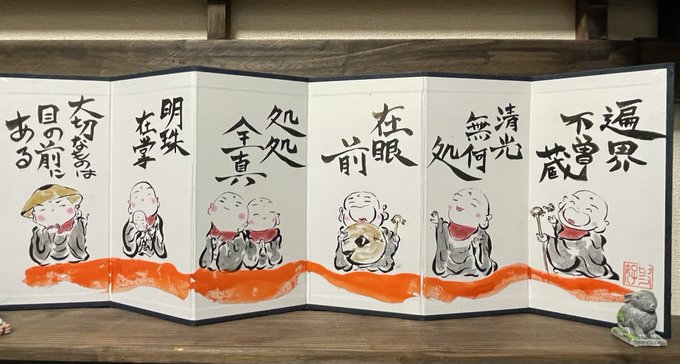 遍界
不曽蔵
清光
無何
処
在眼
前
処処
全真
明珠
在掌
大切なものは
目の前に
ある